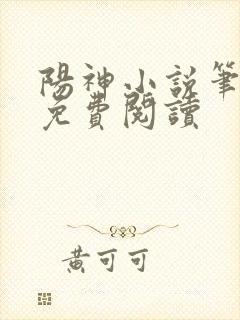 陽神小說筆
免費閱讀
黃可可